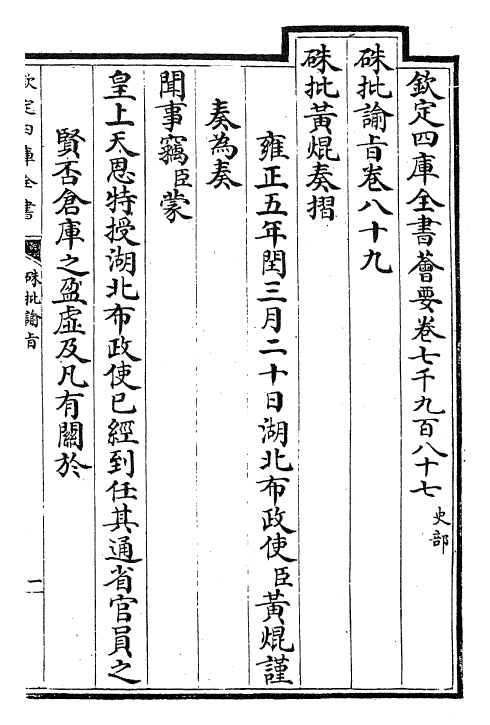 欽定四庫全書薈要卷七千九百八十七 史部
硃批諭旨卷八十九
硃批黃焜奏摺
雍正五年閏三月二十日湖北布政使臣黃焜謹
奏為奏
聞事竊臣蒙
皇上天恩特授湖北布政使已經到任其通省官員之
賢否倉庫之盈虛及凡有關於
欽定四庫全書
硃批諭旨
一